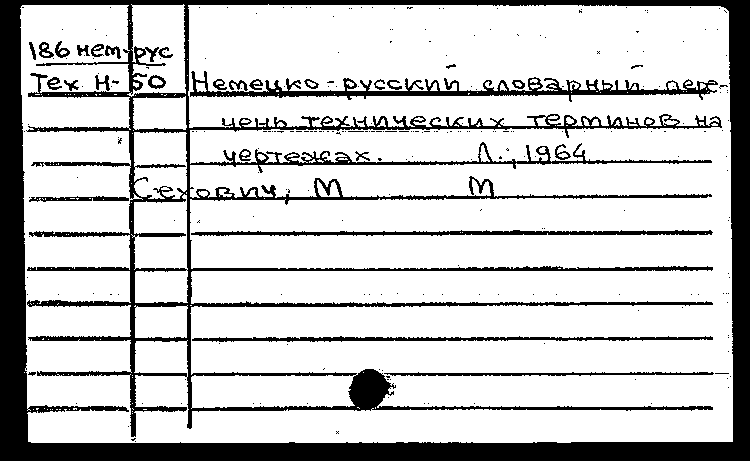 186 нем-рус
Тех Н-50 Немецко-русский словарный пере-
чень технических терминов на
чертежах. Л.; 1964
Сехович, М М